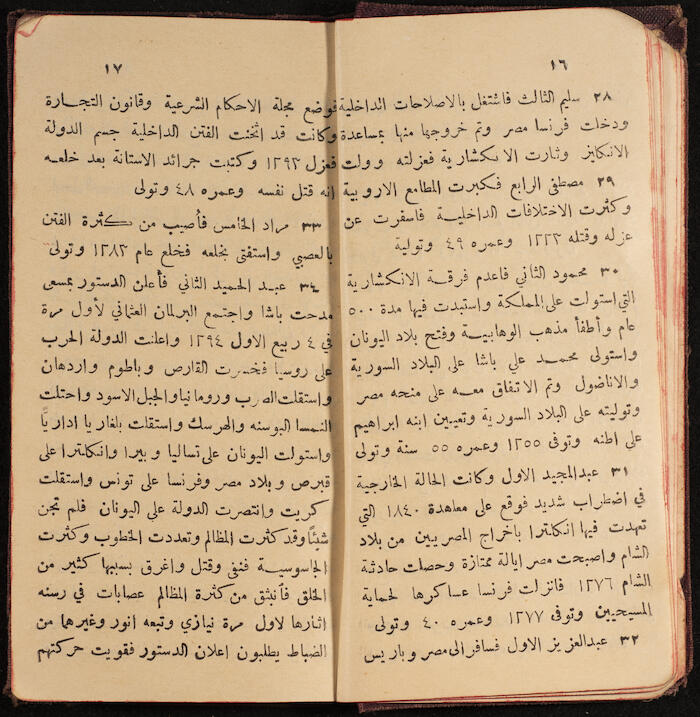 ١٦
٢٨ سليم الثالث فاشتغل بالاصلاحات الداخلية
ودخلت فرنسا مصر وتم خروجها منها بمساعدة
الانكليز وثارت الانكشارية فعزلته وولت
٢٩ مصطفى الرابع فكبرت المطامع الاروبية
وكثرت الاختلافات الداخلية فاسفرت عن
عزله وقتله ١٢٢٣ وعمره ٤٩ وتولية
٣٠ محمود الثاني فاعدم فرقة الانكشارية
التي استولت على المملكة واستبدت فيها مدة ٥٠٠
عام وأطفأ مذهب الوهابية وفتح بلاد اليونان
واستولى محمد علي باشا على البلاد السورية
والاناضول وتم الاتفاق معه على منحه مصر
وتوليته على البلاد السورية وتعيين ابنه ابراهيم
على اطنه وتوفى ١٢٥٥ وعمره ٥٥ سنة وتولى
٣١ عبدالمجيد الاول وكانت الحالة الخارجية
في اضطراب شديد فوقع على معاهدة ١٨٤٠ التي
تعهدت فيها انكلترا باخراج المصريين من بلاد
الشام واصبحت مصر ايالة ممتازة وحصلت حادثة
الشام ١٢٧٦ فانزلت فرنسا عساكرها لحماية
المسيحيين وتوفى ١٢٧٧ وعمره ٤٠ وتولى
٣٢ عبدالعزيز الاول فسافر الى مصر وباريس
١٧
فوضع مجلة الاحكام الشرعية وقانون التجارة
وكانت قد اثخنت الفتن الداخلية جسم الدولة
فعزل ١٢٩٣ وكتبت جرائد الاستانة بعد خلعه
انه قتل نفسه وعمره ٤٨ وتولى
٣٣ مراد الخامس فأصيب من كثرة الفتن
بالعصبي واستفتى بخلعه فخلع عام ١٢٨٣ وتولى
٣٤ عبد الحميد الثاني فأعلن الدستور بمسعى
مدحت باشا واجتمع البرلمان العثماني لأول مرة
في ٤ ربيع الاول ١٢٩٤ واعلنت الدولة الحرب
على روسيا فخسرت القارص وباطوم واردهان
واستقلت الصرب ورومانيا والجبل الاسود واحتلت
النمسا البوسنه والهرسك واستقلت بلغاريا اداريا
واستولت اليونان على تساليا وبيرا وانكلترا على
قبرص وبلاد مصر وفرنسا على تونس واستقلت
كريت وانتصرت الدولة على اليونان فلم تجن
شيئا وقد كثرت المظالم وتعددت الخطوب وكثرت
الجاسوسية فنفى وقتل واغرق بسببها كثير من
الخلق فأنبثق من كثرة المظالم عصابات في رسنه
اثارها لاول مرة نيازي وتبعه انور وغيرها من
الضباط يطلبون اعلان الدستور فقويت حركتهم